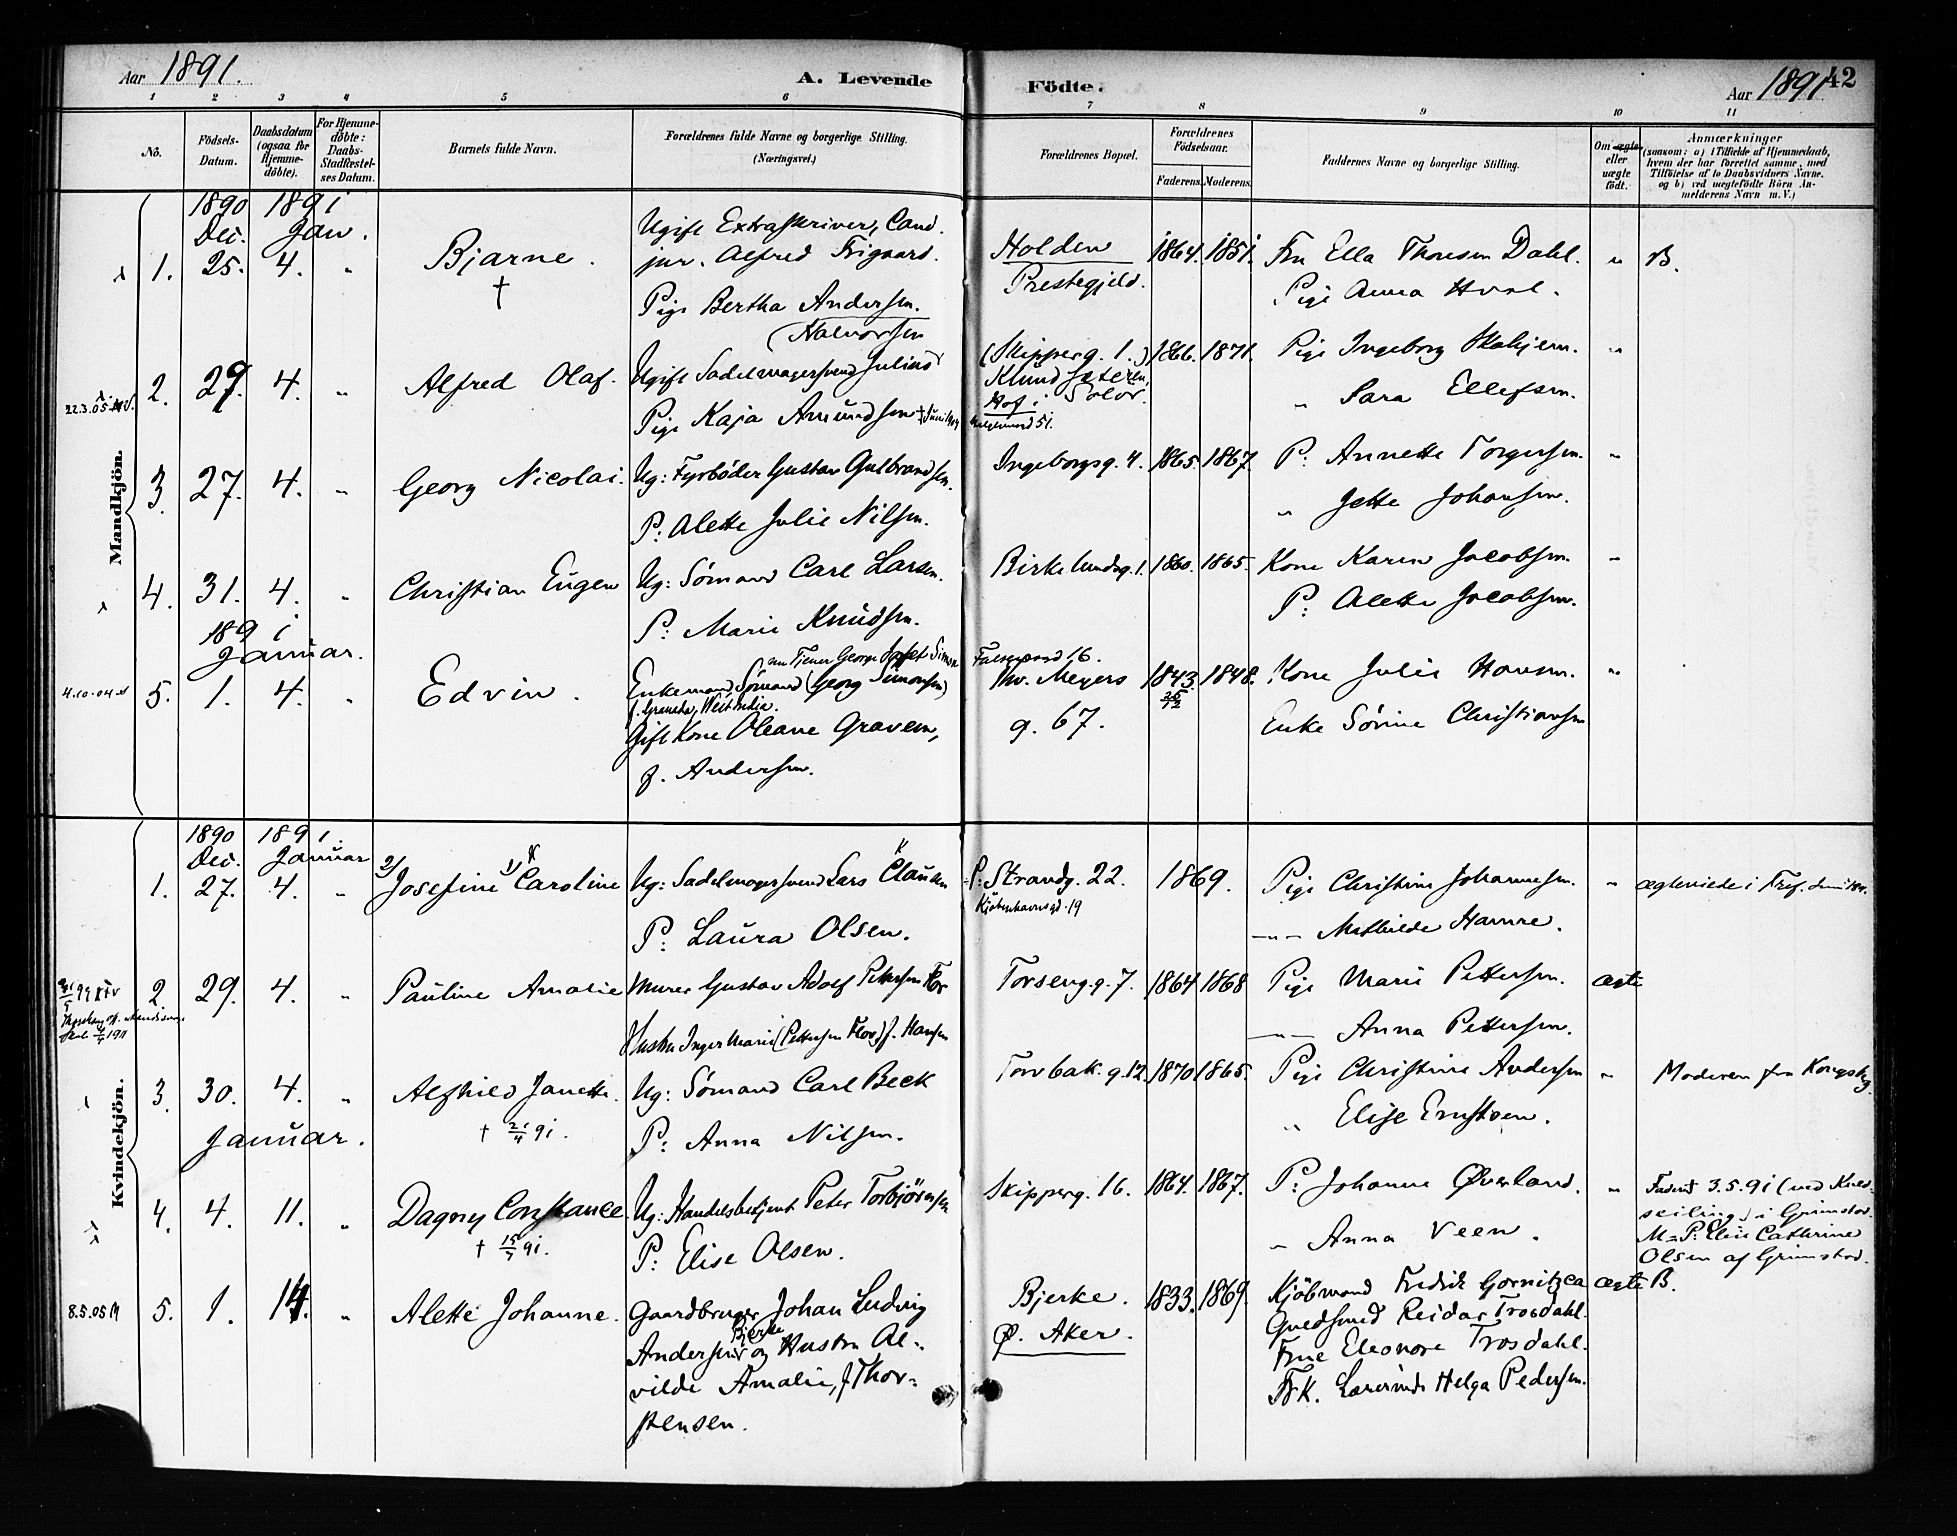 Aar 1891.
A. Levende
Födte.
Aar 1891
42
1 2 3 4 5 6 7 8 9 10 11
No.
Födsels-
Datum.
Daabsdatum
(ogsaa for
Hjemme-
döbte).
For Hjemme-
döbte:
Daabs-
Stadfæstel-
ses Datum.
Barnets fulde Navn.
Forældrenes fulde Navne og borgerlige Stilling.
(Næringsvei.)
Forældrenes Bopæl.
Forældrenes
Födselsaar.
Faderens. Moderens.
Faddernes Navne og borgerlige Stilling.
Om ægte
eller
uægte
födt.
Anmærkninger
(saasom: a) i Tilfælde af Hjemmedaab,
hvem der har forrettet samme, med
Tilföielse af to Daabsvidners Navne,
og b) ved uægtefödte Börn An-
melderens Navn m. V.)
Mandkjön.
1890 1891
Dec. Jan.
1. 25. 4. " Bjarne. †
Ugift Extraskriver, Cand.
jur. Alfred Frigaard.
Pige Bertha Andersen.
(Halvorsen
Holden
Prestegjeld.
1864. 1851.
Fru Ella Thoresen Dahl.
Pige Anna Hval.
" B.
22.3.05
2. 29. 4. " Alfred Olaf.
Ugift Sadelmagersvend Julius
Pige Kaja Amundsen
(Skipperg. 1.)
Hof i Solör.
1866. 1871.
Pige Ingeborg
" Sara Ellefsen.
"
3. 27. 4. " Georg Nicolai.
Ug: Fyrböder Gustav Gulbrandsen.
P: Alette Julie Nilsen.
Ingeborgsg. 4. 1865. 1867.
P: Annette Torgersen.
" Jette Johansen.
"
4. 31. 4. " Christian Eugen
Ug: Sömand Carl Larsen.
P: Marie Knudsen.
Birkelundsg. 1. 1860. 1865.
Kone Karen Jacobsen.
P: Alette Jacobsen.
"
1891
Januar.
4.10.04
5. 1. 4. " Edvin.
Tjener George
Enkemand Sömand (Georg Simonsen)
f. Granada, Westindia.
Gift Kone Oleane Gravem,
f. Andersen.
16.
Thv. Meyers
g. 67.
1843. 1848.
Kone Julie Hansen.
Enke Sörine Christiansen
"
Kvindekjön.
1890 1891.
Dec. Januar
1. 27. 4. " 2) Josefine 1) Caroline
Ug: Sadelmagersvend Lars Clausen
P: Laura Olsen.
P: Strandg. 22.
Kjöbenhavnsgd. 19
1869.
Pige Christine Johannesen.
" " Mathilde Hamre.
"
2. 29. 4. " Pauline Amalie
Murer Gustav Adolf Pettersen Flor
Hustru Inger Marie (Pettersen Flor) f. Hansen
Torseng. g. 7. 1864 1868
Pige Marie Pettersen.
" " Anna Pettersen.
ægte
3. 30. 4. " Alfhild Janette.
† 21/4 91.
Ug: Sömand Carl Beck
P: Anna Nilsen.
Torvbak. g. 12. 1870 1865.
Pige Christine Andersen
" Elise Ernstsen.
"
Moderen fra Kongsbg.
Januar.
4. 4. 11. " Dagny Constance.
† 15/7 91.
Ug: Handelsbetjent Peter Torbjörnsen
P: Elise Olsen.
Skipperg. 16. 1864. 1867.
P: Johanne Øverland.
" Anna Veen.
"
3.5.91
i Grimstad.
M = P: Elise Cathrine
Olsen af Grimstad.
8.5.05
5. 1. 14. " Alette Johanne.
Gaardbruger Johan Ludvig
Andersen Bjerke og Hustru Al-
vilde Amalie, f. Thor-
stensen.
Bjerke.
Ø. Aker.
1833. 1869.
Kjöbmand Fredrik Gornitzca
Guldsmed Reidar Trosdahl.
Frue Eleonore Trosdahl.
Frk. Lærerinde Helga Pedersen.
ægte B.